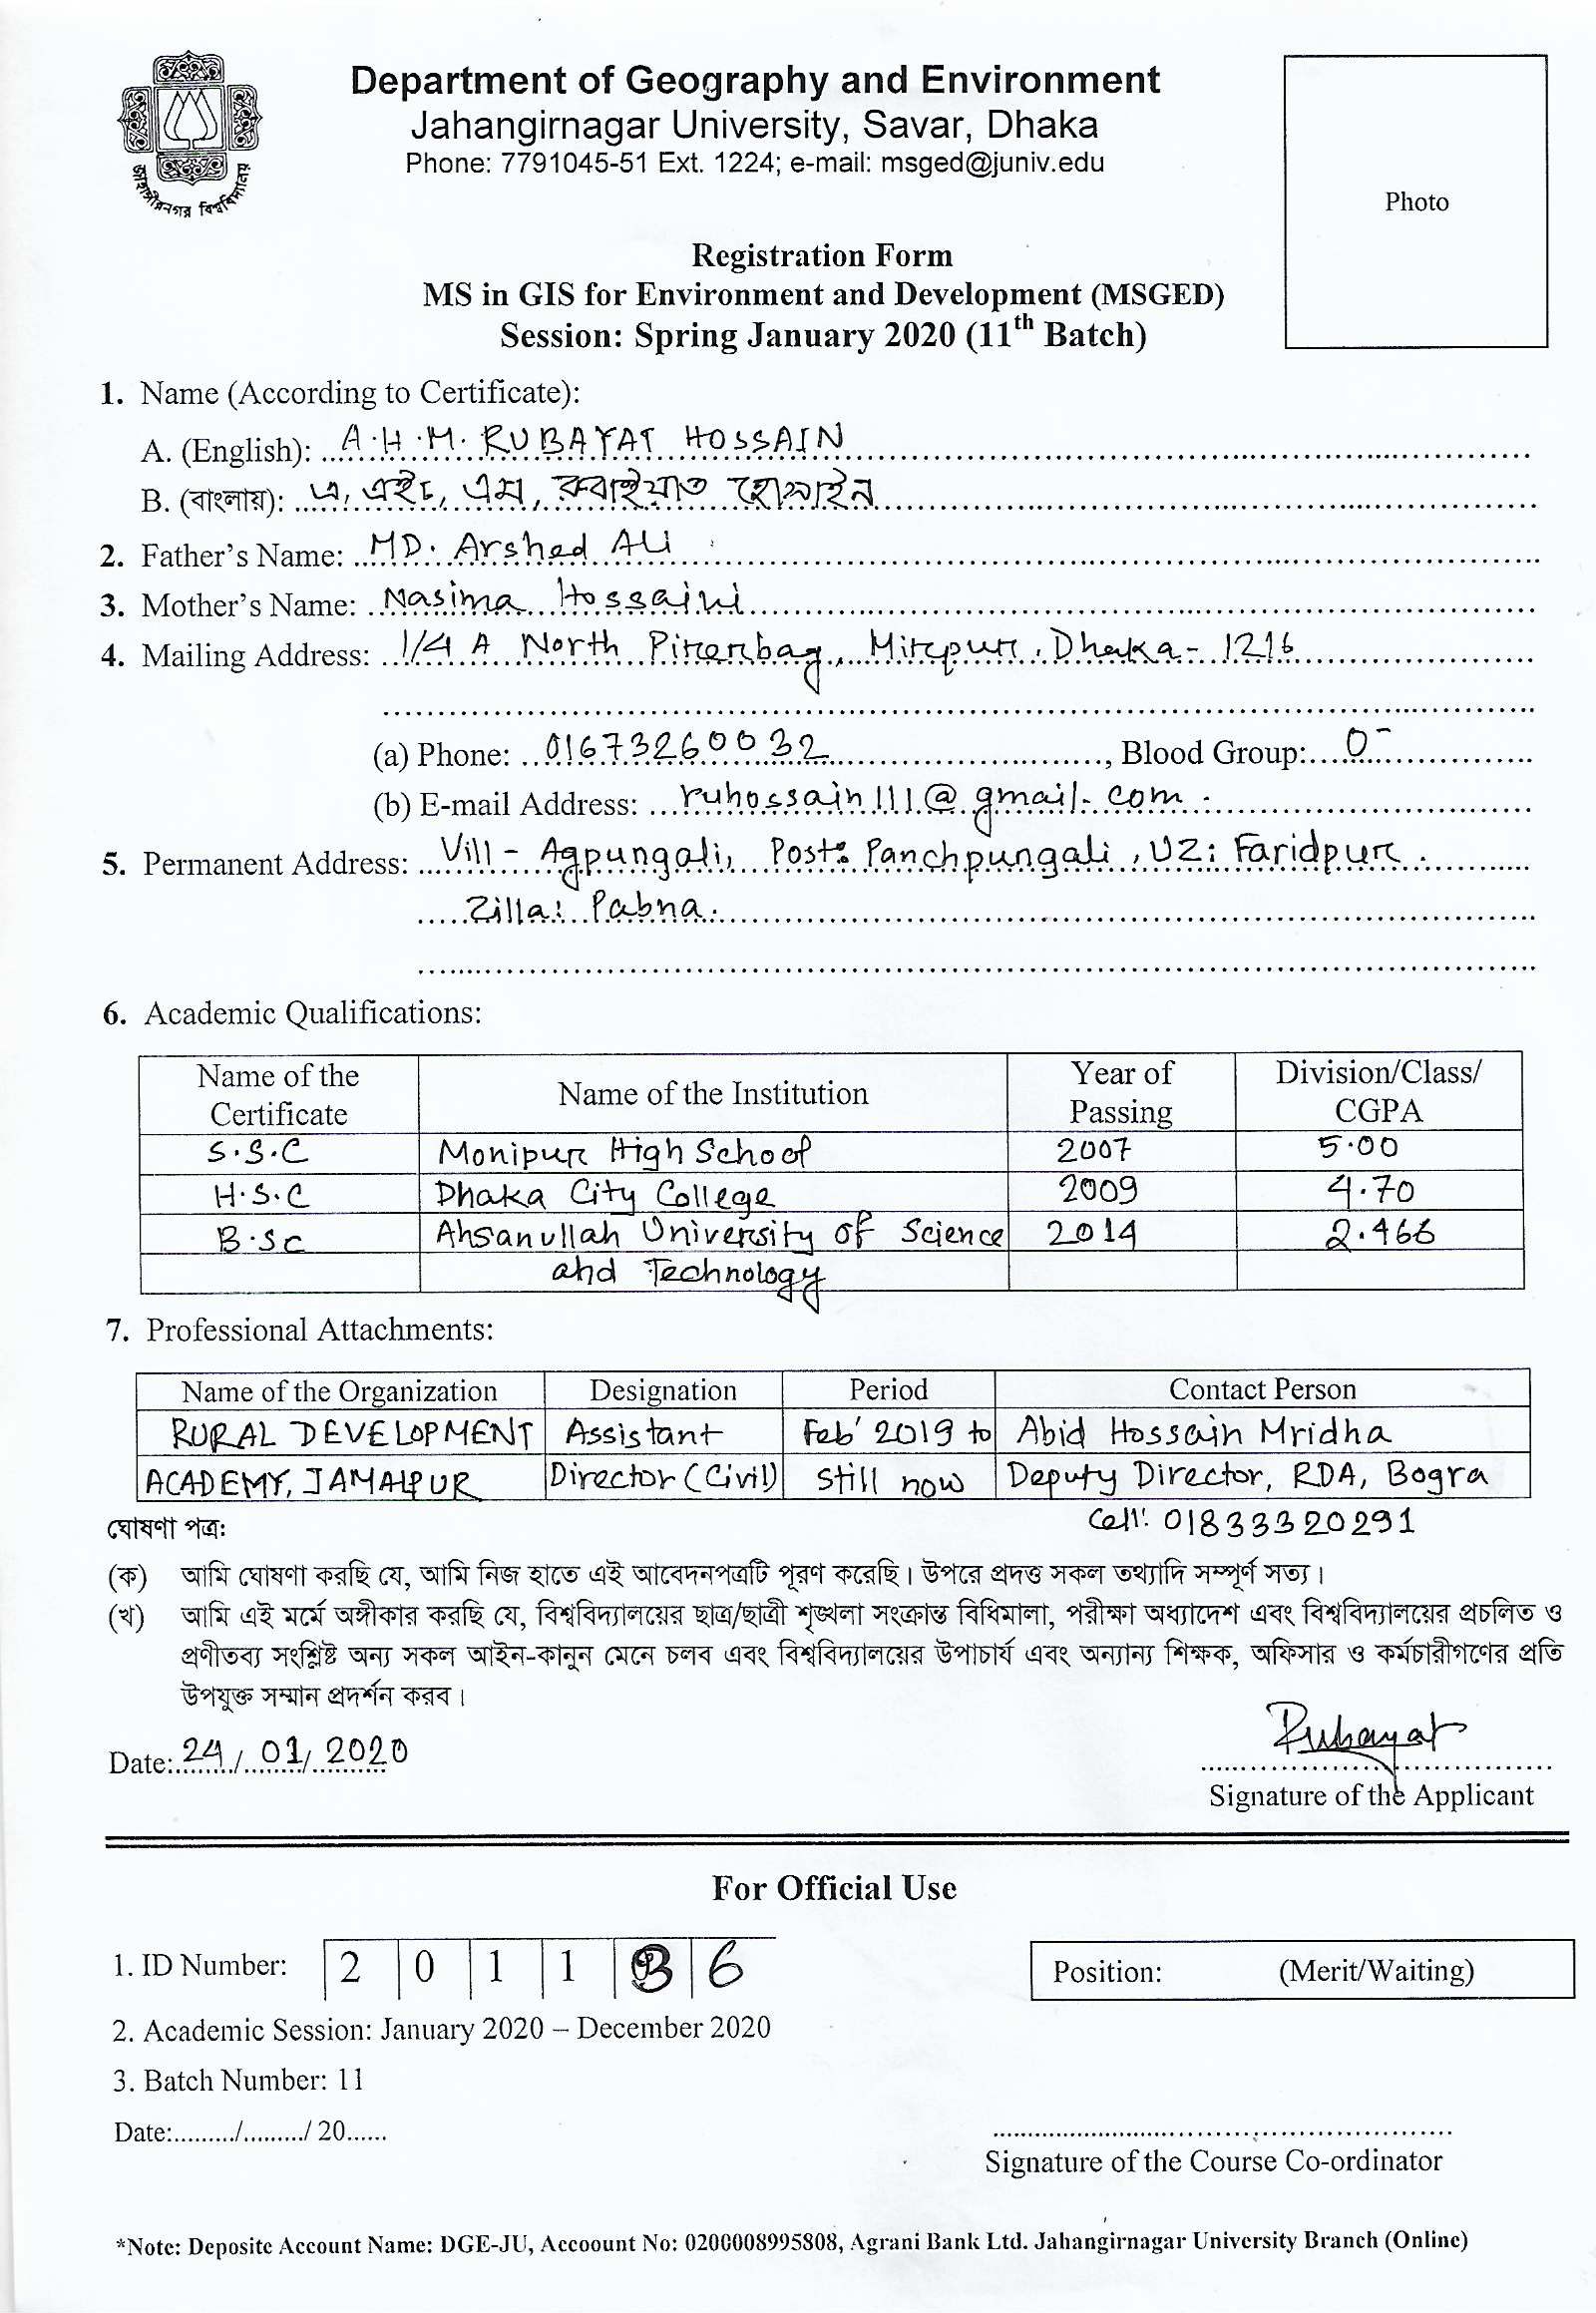 Department of Geography and Environment
Jahangirnagar University, Savar, Dhaka
Phone: 7791045-51 Ext. 1224; e-mail: msged@juniv.edu
জাহাঙ্গীরনগর বিশ্ববিদ্যালয়
Photo
Registration Form
MS in GIS for Environment and Development (MSGED)
Session: Spring January 2020 (11th Batch)
1. Name (According to Certificate):
A. (English): A.H.M. RUBAYAT HOSSAIN
B. (বাংলায়): এ, এইচ, এম, রুবাইয়াত হোসাইন
2. Father's Name: MD. Arshed Ali
3. Mother's Name: Nasima Hossaini
4. Mailing Address: 1/4 A North Pirerbag, Mirpur, Dhaka - 1216
(a) Phone: 01673260032, Blood Group: O-
(b) E-mail Address: ruhossain111@gmail.com
5. Permanent Address: Vill - Agpungali, Post: Panchpungali, UZ: Faridpur.
Zilla: Pabna.
6. Academic Qualifications:
Name of the Certificate Name of the Institution Year of Passing Division/Class/CGPA
S.S.C Monipur High School 2007 5.00
H.S.C Dhaka City College 2009 4.70
B.Sc Ahsanullah University of Science 2014 2.466
and Technology
7. Professional Attachments:
Name of the Organization Designation Period Contact Person
RURAL DEVELOPMENT Assistant Feb' 2019 to Abid Hossain Mridha
ACADEMY, JAMALPUR Director (Civil) still now Deputy Director, RDA, Bogra
Cell: 01833320291
ঘোষণা পত্র:
(ক) আমি ঘোষণা করছি যে, আমি নিজ হাতে এই আবেদনপত্রটি পূরণ করেছি। উপরে প্রদত্ত সকল তথ্যাদি সম্পূর্ণ সত্য।
(খ) আমি এই মর্মে অঙ্গীকার করছি যে, বিশ্ববিদ্যালয়ের ছাত্র/ছাত্রী শৃঙ্খলা সংক্রান্ত বিধিমালা, পরীক্ষা অধ্যাদেশ এবং বিশ্ববিদ্যালয়ের প্রচলিত ও
প্রণীতব্য সংশ্লিষ্ট অন্য সকল আইন-কানুন মেনে চলব এবং বিশ্ববিদ্যালয়ের উপাচার্য এবং অন্যান্য শিক্ষক, অফিসার ও কর্মচারীগণের প্রতি
উপযুক্ত সম্মান প্রদর্শন করব।
Date: 24/01/2020
Rubayat
Signature of the Applicant
For Official Use
1. ID Number: 2 0 1 1 3 6
Position: (Merit/Waiting)
2. Academic Session: January 2020 – December 2020
3. Batch Number: 11
Date:........./........./ 20......
Signature of the Course Co-ordinator
*Note: Deposite Account Name: DGE-JU, Accoount No: 0200008995808, Agrani Bank Ltd. Jahangirnagar University Branch (Online)